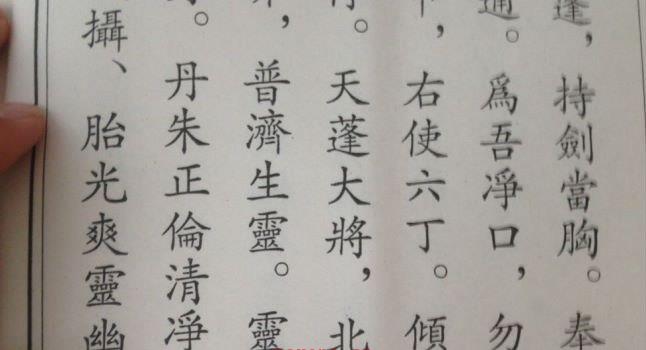 蓬，持劍當胸。奉
通。爲吾凈口，勿
下，右使六丁。傾
天蓬大將，北
，普濟生靈。靈
。丹朱正倫清凈
攝、胎光爽靈幽